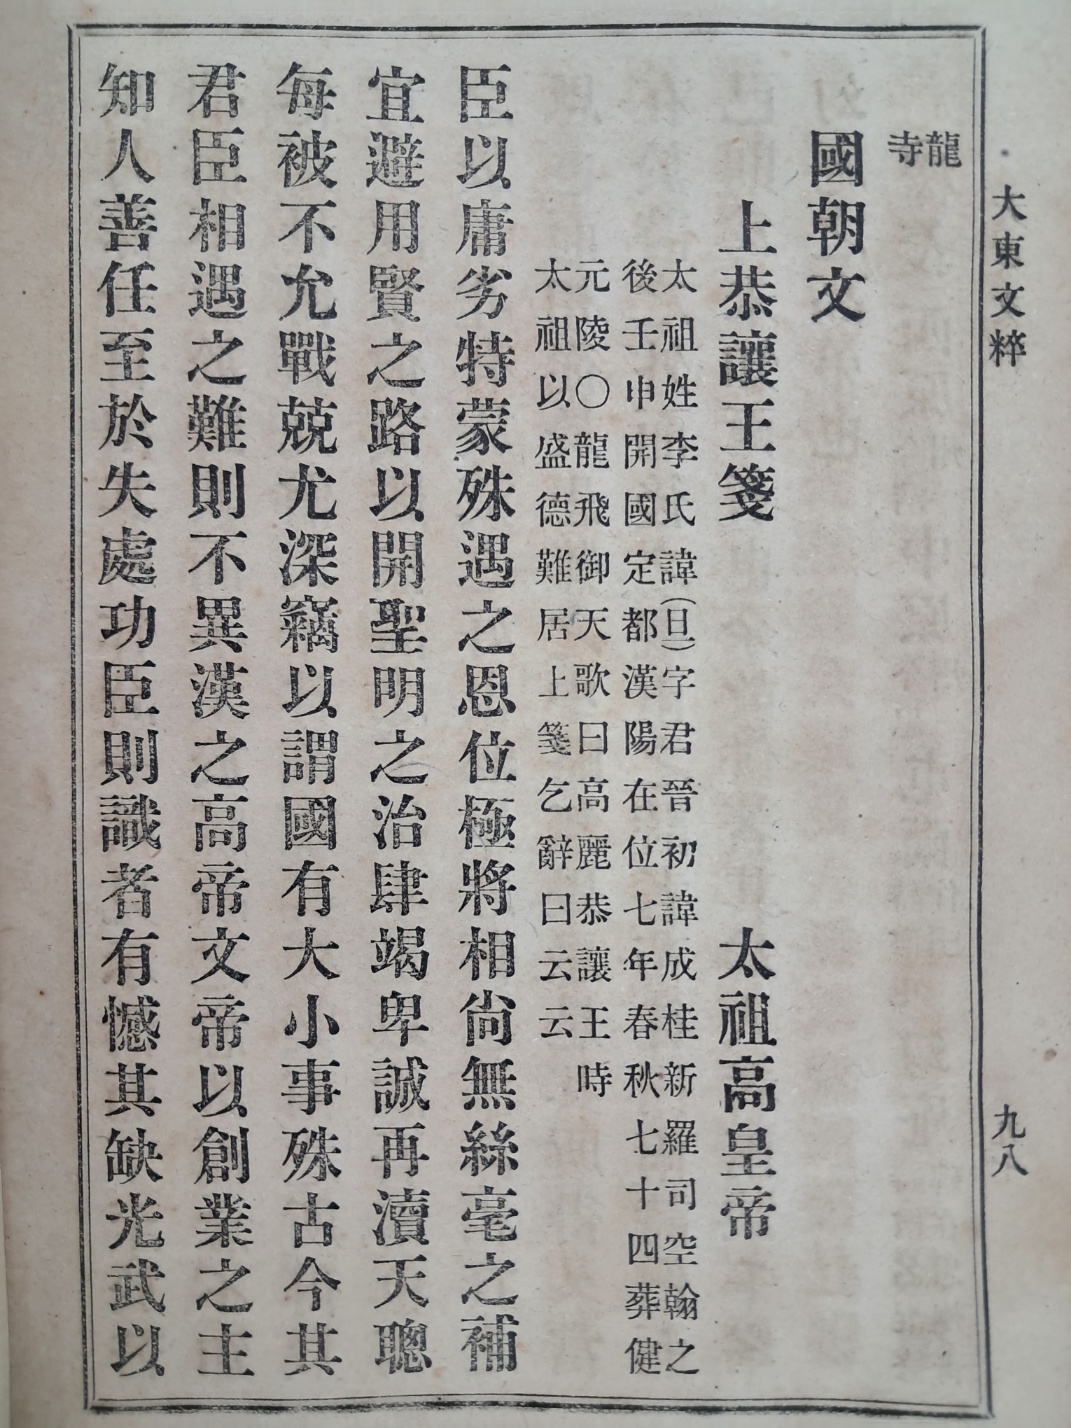 大東文粹
九八
龍
寺
國朝文
上恭讓王箋
太祖高皇帝
太祖姓李氏諱(旦)字君晉初諱成桂新羅司空翰之
後壬申開國定都漢陽在位七年春秋七十四葬健
元陵○龍飛御天歌曰高麗恭讓王時
太祖以盛德難居上箋乞辭曰云云
臣以庸劣特蒙殊遇之恩位極將相尙無絲毫之補
宜避用賢之路以開聖明之治肆竭卑誠再瀆天聰
每被不允戰兢尤深竊以謂國有大小事殊古今其
君臣相遇之難則不異漢之高帝文帝以創業之主
知人善任至於失處功臣則識者有憾其缺光武以